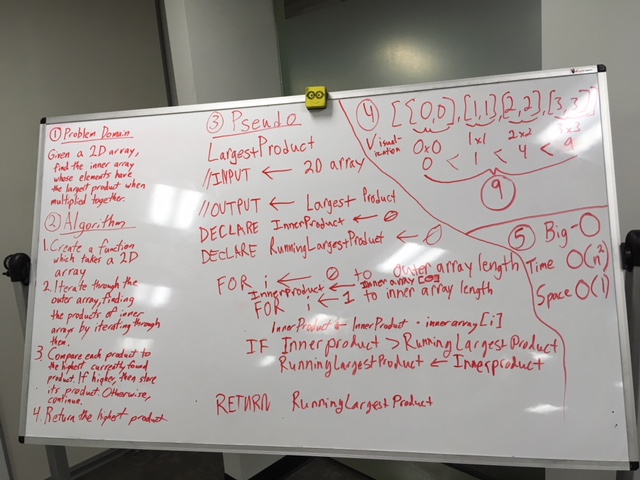 ① Problem Domain
Given a 2D array,
find the inner array
whose elements have
the largest product when
multiplied together.
② Algorithm
1. Create a function
which takes a 2D
array
2. Iterate through the
outer array, finding
the products of inner
arrays by iterating through
them.
3. Compare each product to
the highest currently found
product. If higher, then store
its product. Otherwise,
continue.
4. Return the highest product
③ Pseudo
LargestProduct
//INPUT ← 2D array
//OUTPUT ← Largest Product
DECLARE InnerProduct ← 0
DECLARE RunningLargestProduct ← 0
FOR i ← 0 to outer array length
InnerProduct ← Inner array [0]
FOR i ← 1 to inner array length
InnerProduct ← InnerProduct · innerarray[i]
IF Innerproduct > RunningLargestProduct
RunningLargestProduct ← Innerproduct
RETURN RunningLargestProduct
④ [[0,0],[1,1][2,2],[3,3]]
Visual-
ization
0x0 1x1 2x2 3x3
0 < 1 < 4 < 9
9
⑤ Big-O
Time O(n²)
Space O(1)